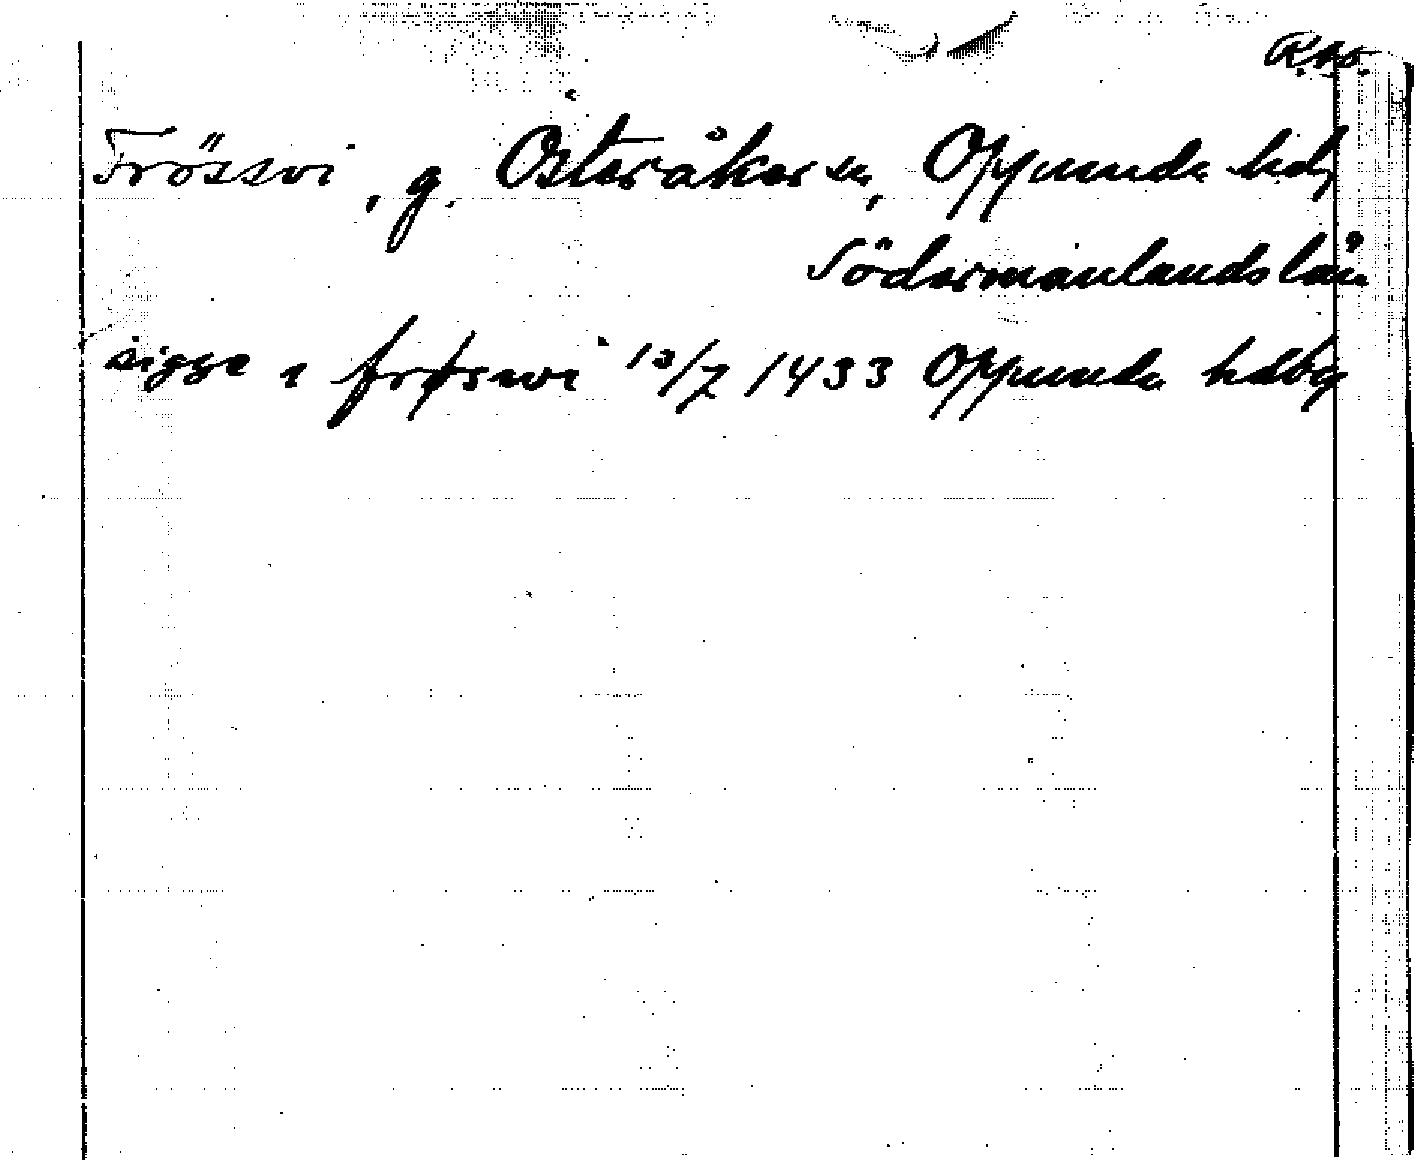 Frössvi, g. Österåker sn, Oppunda hd,
Södermanlands län
sigge i frøswi 13/7 1433 Oppunda hdbg